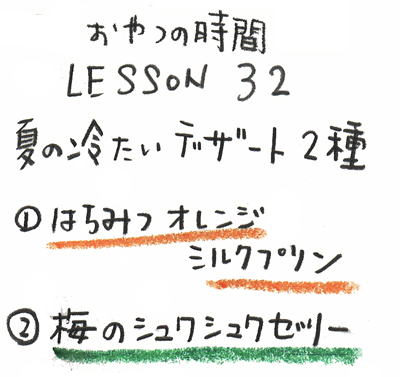 おやつの時間
LESSON 32
夏の冷たいデザート2種
①はちみつオレンジ
ミルクプリン
②梅のシュワシュワゼリー